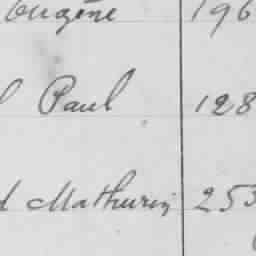 Eugène 196
l Paul 128
d Mathurin 253